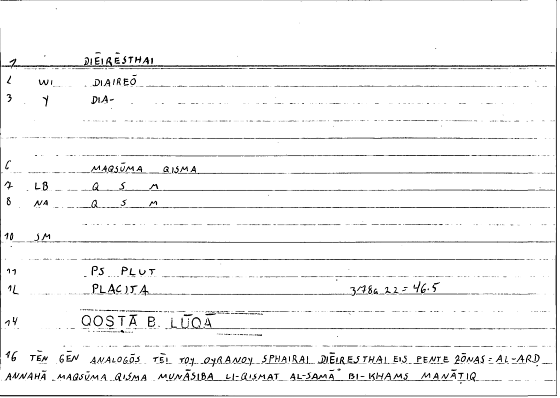 1 DIĒIRĒSTHAI
2 WI DIAIREŌ
3 Y DIA-
6 MAQSŪMA QISMA
7 LB Q S M
8 NA Q S M
10 SM
11 PS PLUT
12 PLACITA 378a 22 = 46.5
14 QOSṬĀ B. LŪQĀ
16 TĒN GĒN ANALOGŌS TĒI TOY OYRANOY SPHAIRAI DIĒIRESTHAI EIS PENTE ZŌNAS = AL-ARD
ANNAHĀ MAQSŪMA QISMA MUNĀSIBA LI-QISMAT AL-SAMĀ' BI-KHAMS MANĀṬIQ